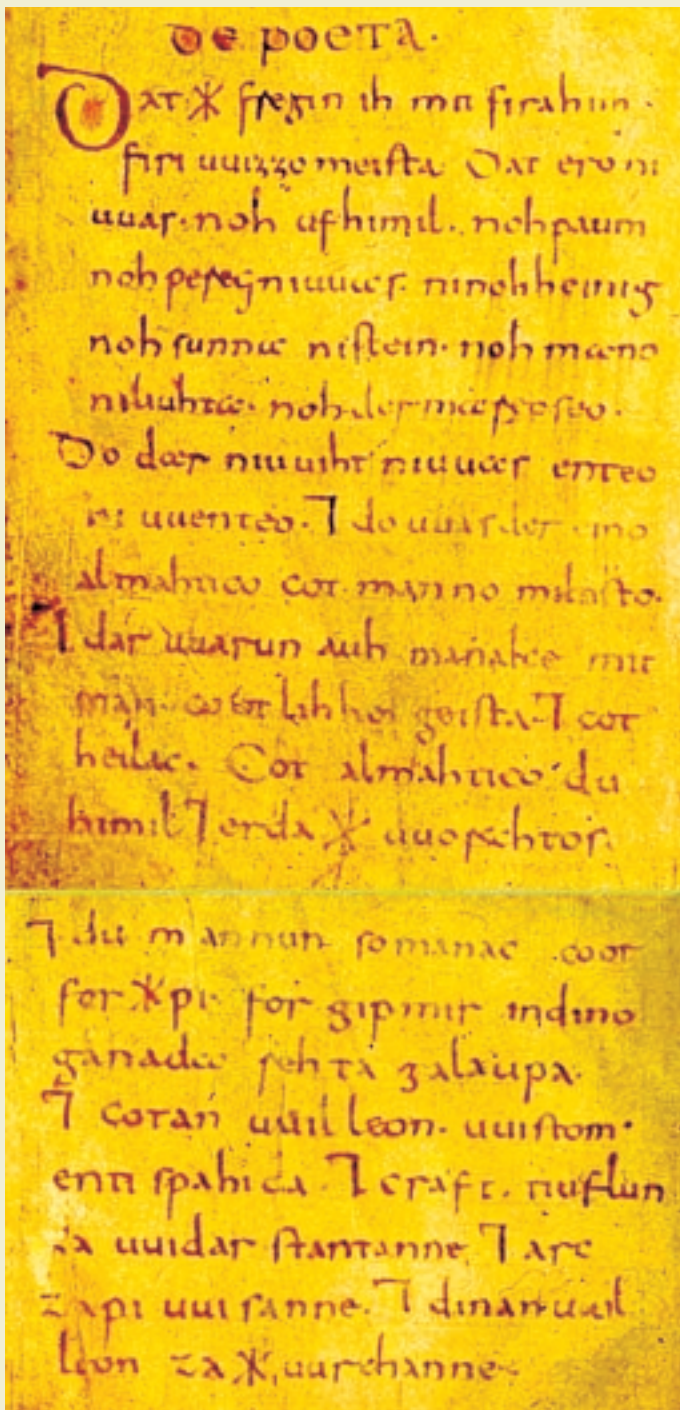 De poeta.
Dat ᚼ fregin ih mit firahim
firi uuizzo meista. Dat ero ni
uuas. noh ufhimil. noh paum
noh pereg ni uuas. ninohheinig
noh sunna nistein. noh mano
niliuhta. noh der mareo seo.
Do dar niuuiht niuuas enteo
ni uuenteo. ⁊ do uuas der eino
almahtico cot manno miltisto.
⁊ dar uuarun auh manake mit
man. cootlihhe geista. ⁊ cot
heilac. Cot almahtico du
himil ⁊ erda ᚼ uuorahtos.
⁊ du mannun so manac coot
for ᚼ pi. for gipmir indino
ganada rehta galaupa.
⁊ cotan uuilleon. uuistom.
enti spahida. ⁊ craft. tiuflun
za uuidar stantanne. ⁊ arc
zapi uuisanne. ⁊ dinan uuil
leon za ᚼ uurchanne.